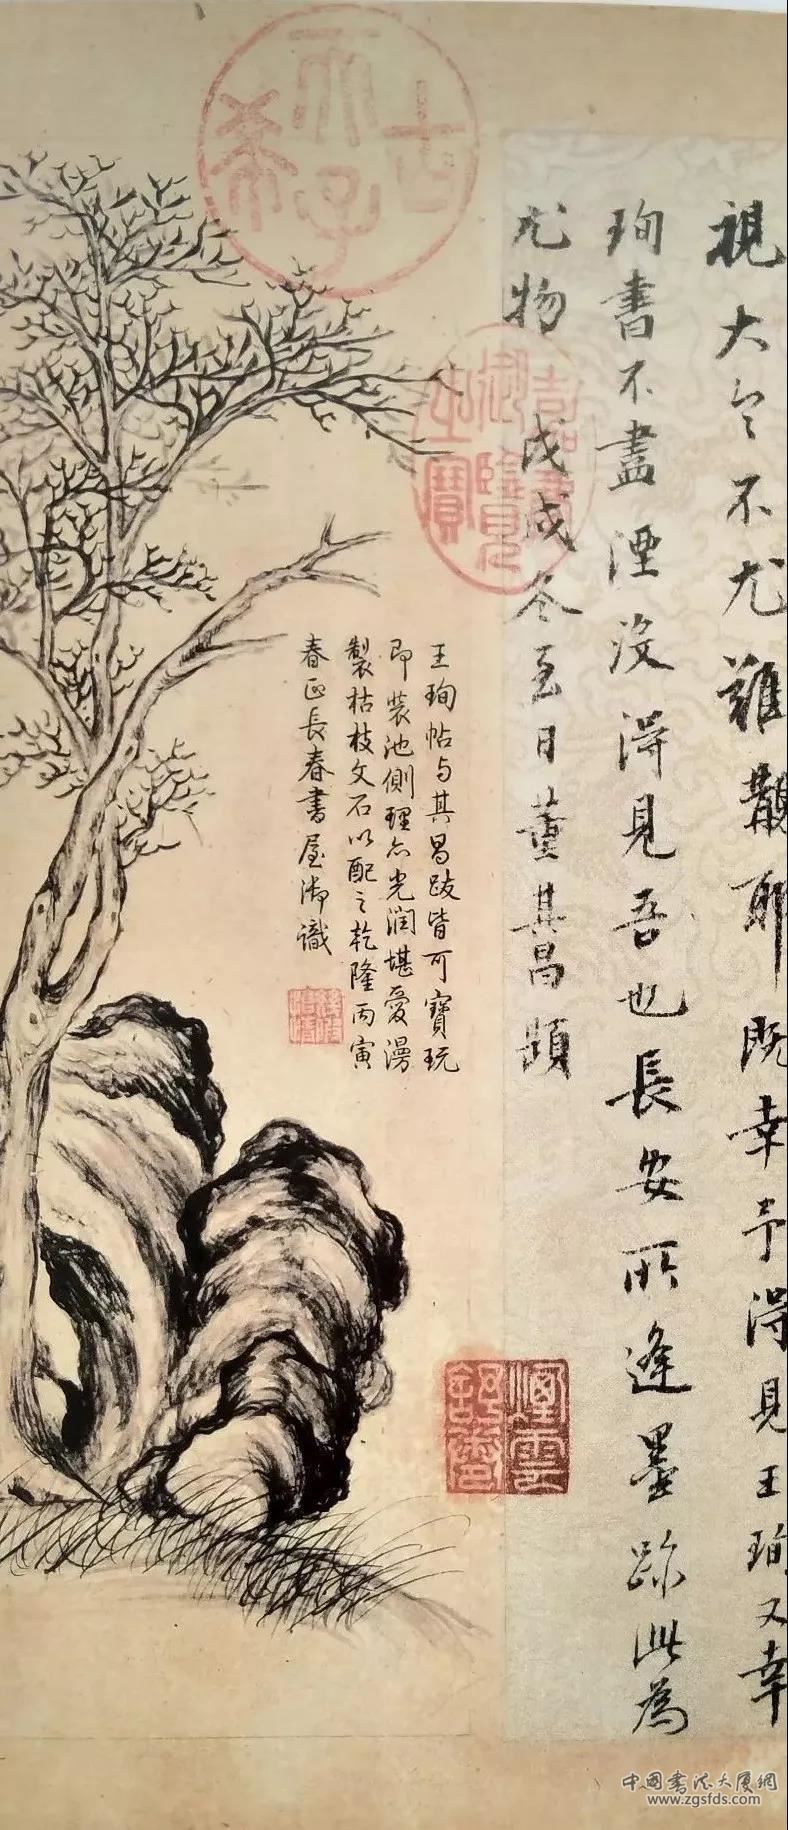 視大令不尤難覯耶既幸予得見王珣又幸
珣書不盡湮没得見吾也長安所逢墨跡此為
尤物 戊戌冬至日董其昌題
王珣帖与其昌跋皆可寶玩
即裝池側理亦光潤堪愛漫
製枯枝文石以配之乾隆丙寅
春正長春書屋御識
古希天子
嘉慶御覽之寶
中国書法大厦網
www.zgsfds.com